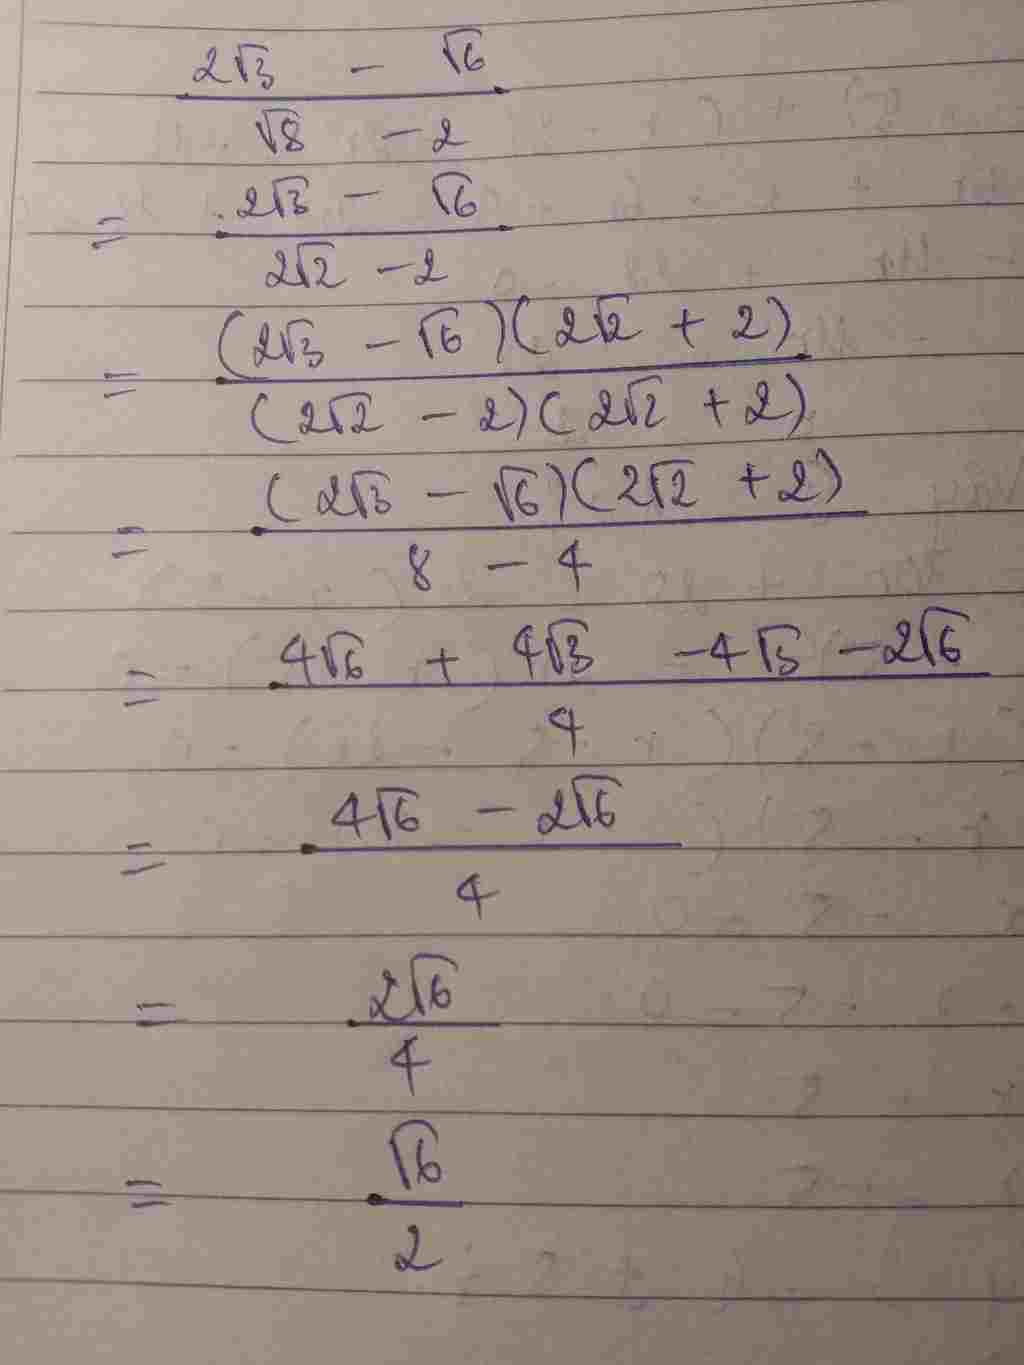 2√3 - √6
√8 - 2
= 2√3 - √6
2√2 - 2
= (2√3 - √6)(2√2 + 2)
(2√2 - 2)(2√2 + 2)
= (2√3 - √6)(2√2 + 2)
8 - 4
= 4√6 + 4√3 - 4√3 - 2√6
4
= 4√6 - 2√6
4
= 2√6
4
= √6
2